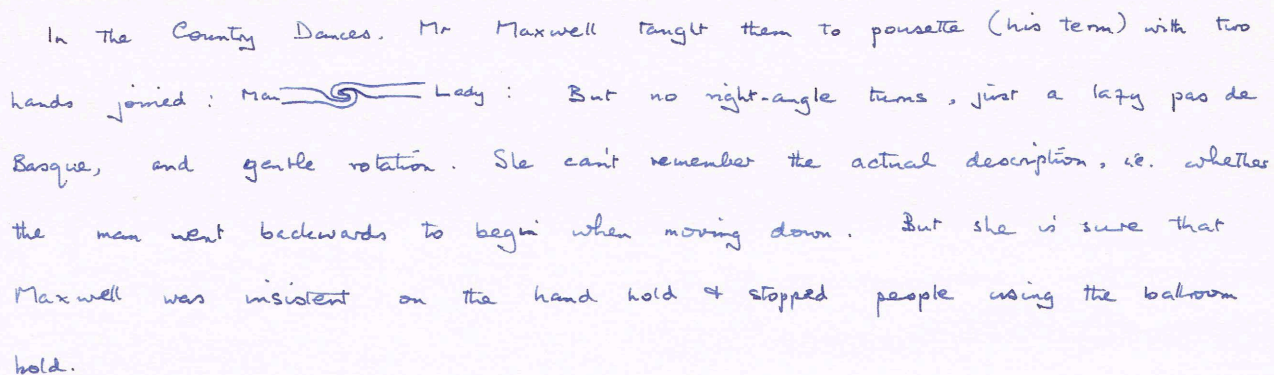 In the Country Dances. Mr Maxwell taught them to pousette (his term) with two
hands joined: Man Lady: But no right-angle turns, just a lazy pas de
Basque, and gentle rotation. She can't remember the actual description, i.e. whether
the man went backwards to begin when moving down. But she is sure that
Maxwell was insistent on the hand hold & stopped people using the ballroom
hold.